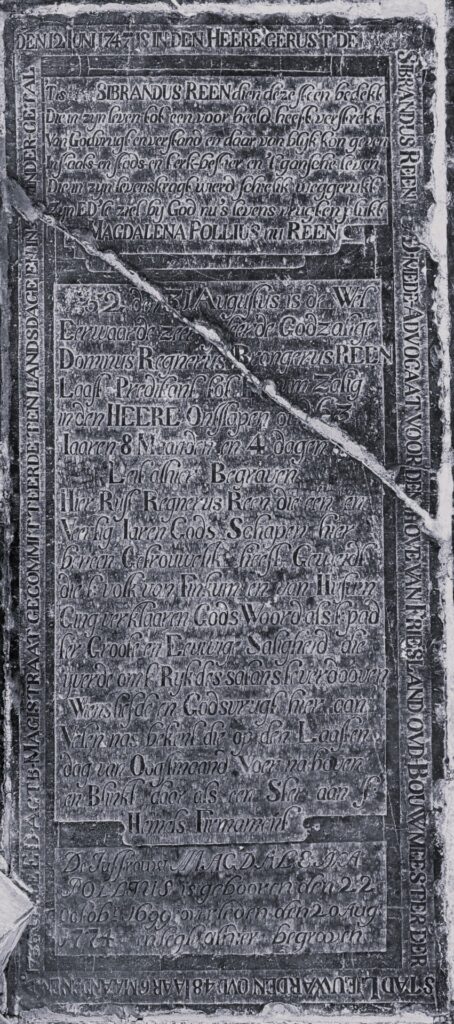 DEN 12 IUNI 1747 IS IN DEN HEERE GERUST DE
SIBRANDUS REEN IN LEVEDE ADVOCAAT VOOR DEN HOVE VAN FRIESLAND OVD BOUWMEESTER DER
STAD LIEUWARDEN OVD 48 IAAR 6 MAANDEN EN
MAGISTRAAT GECOMMITTEERDE TEN LANDSDAGE EN IN MINDER GETAL
Tis SIBRANDUS REEN dien deze steen bedekt
Die in zyn leven tot een voor beeld heeft verstrekt
Van Godvrugt en verstand en daar van blyk kon geven
in staats en stads en kerk-bestier en 't gansche leven
Die in zyn levenskragt wierd schielik weggerukt
Zyn ED'le ziel by God nu 's levens vrugten plukt
MAGDALENA POLLIUS nu REEN
1752 den 31 Augustus is de Wel
Eerwaarde zeer geleerde Godzalige
Dominus Regnerus Brongerus REEN
Laast Predikant tot Finkum zalig
in den HEERE Ontslapen oud 63
Iaaren 8 Maanden en 4 dagen
Leit alhier Begraven
Hier Rust Regnerus Reen die een en
Vertig Iaren Gods Schapen hier
beneen Getrouwelik heeft Geweidt
die 't volk van Finkum en van Hijum
Ging verklaaren Gods Woord als 't pad
ter Groote en Eeuwige Saligheid die
yverde om 't Ryk des satans te verdooven
Wens liefde en Godsvrugt hier aan
Velen was bekent die op den Laasten
dag van Oogstmaand Voer na boven
en Blinkt daar als een Ster aan 't
Hemels Firmament
De Juffrouw MAGDALENA
POLLIUS is gebooren den 22
octobr 1699 overleden den 20 Aug
1774 en legt alhier begraven